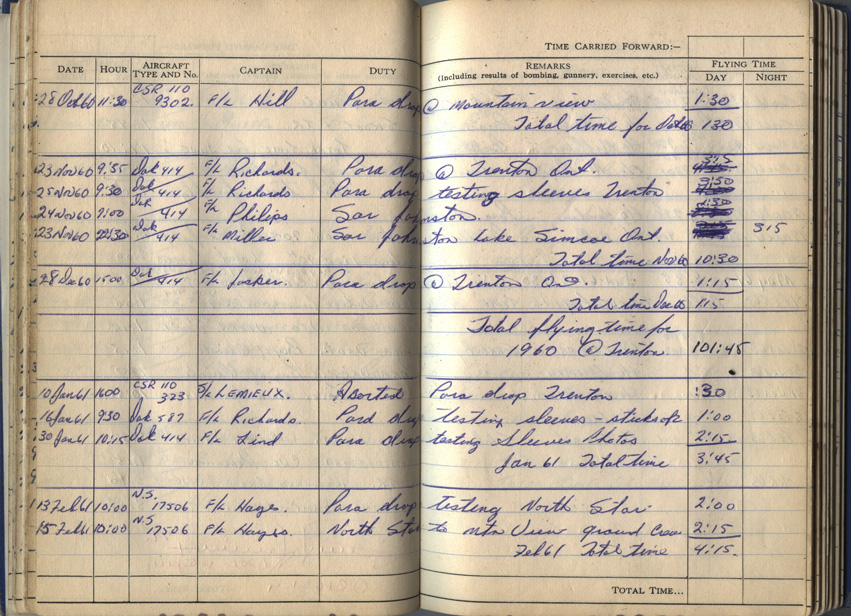 TIME CARRIED FORWARD:–
DATE HOUR AIRCRAFT TYPE AND No. CAPTAIN DUTY REMARKS (Including results of bombing, gunnery, exercises, etc.) FLYING TIME DAY NIGHT
28 Oct 60 11:30 CSR 110 9302. F/L Hill Para drop @ Mountain view 1:30
Total time for 130
23 Nov 60 9:55 Dak 414 F/L Richards. Para drop @ Trenton Ont.
25 Nov 60 9:30 Dak 414 F/L Richards Para drop testing sleeves Trenton
24 Nov 60 9:00 Dak 414 F/L Philips Sar Johnston.
23 Nov 60 Dak 414 F/L Miller Sar Johnston Lake Simcoe Ont. 315
Total time Nov 60 10:30
28 Dec 60 1500 Dak 414 F/L Para drop @ Trenton Ont. 1:15
Total time Dec 60 115
Total flying time for
1960 @ Trenton. 101:45
10 Jan 61 1600 CSR 110 323 S/L LEMIEUX. Aborted Para drop Trenton :30
16 Jan 61 930 Dak 587 F/L Richards. Para drop testing sleeves – sticks of 2 1:00
30 Jan 61 10:15 Dak 414 F/L Lind Para drop testing Sleeves Photos 2:15
Jan 61 Total time 3:45
13 Feb 61 10:00 N.S. 17506 F/L Hayes. Para drop testing North Star 2:00
15 Feb 61 10:00 N.S. 17506 F/L Hayes. North Star to Mtn View ground Crew 2:15
Feb 61 Total time 4:15.
TOTAL TIME...